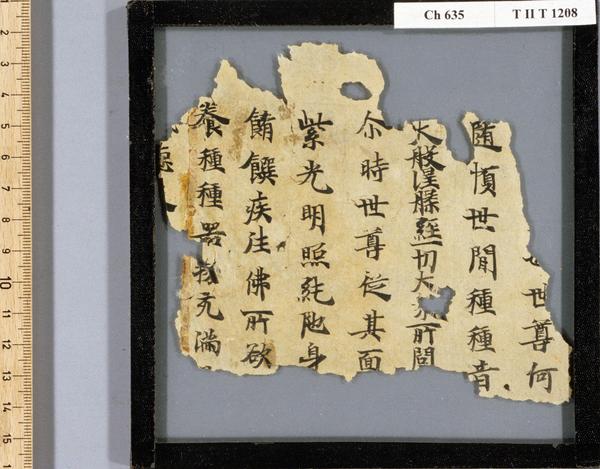 Ch 635 T II T 1208
世尊何
随順世間種種音
大般涅槃經一切大眾所問
尒時世尊從其面
紫光明照純陁身
餚饌疾往佛所欲
養種種器物充滿
2
3
4
5
6
7
8
9
10
11
12
13
14
15